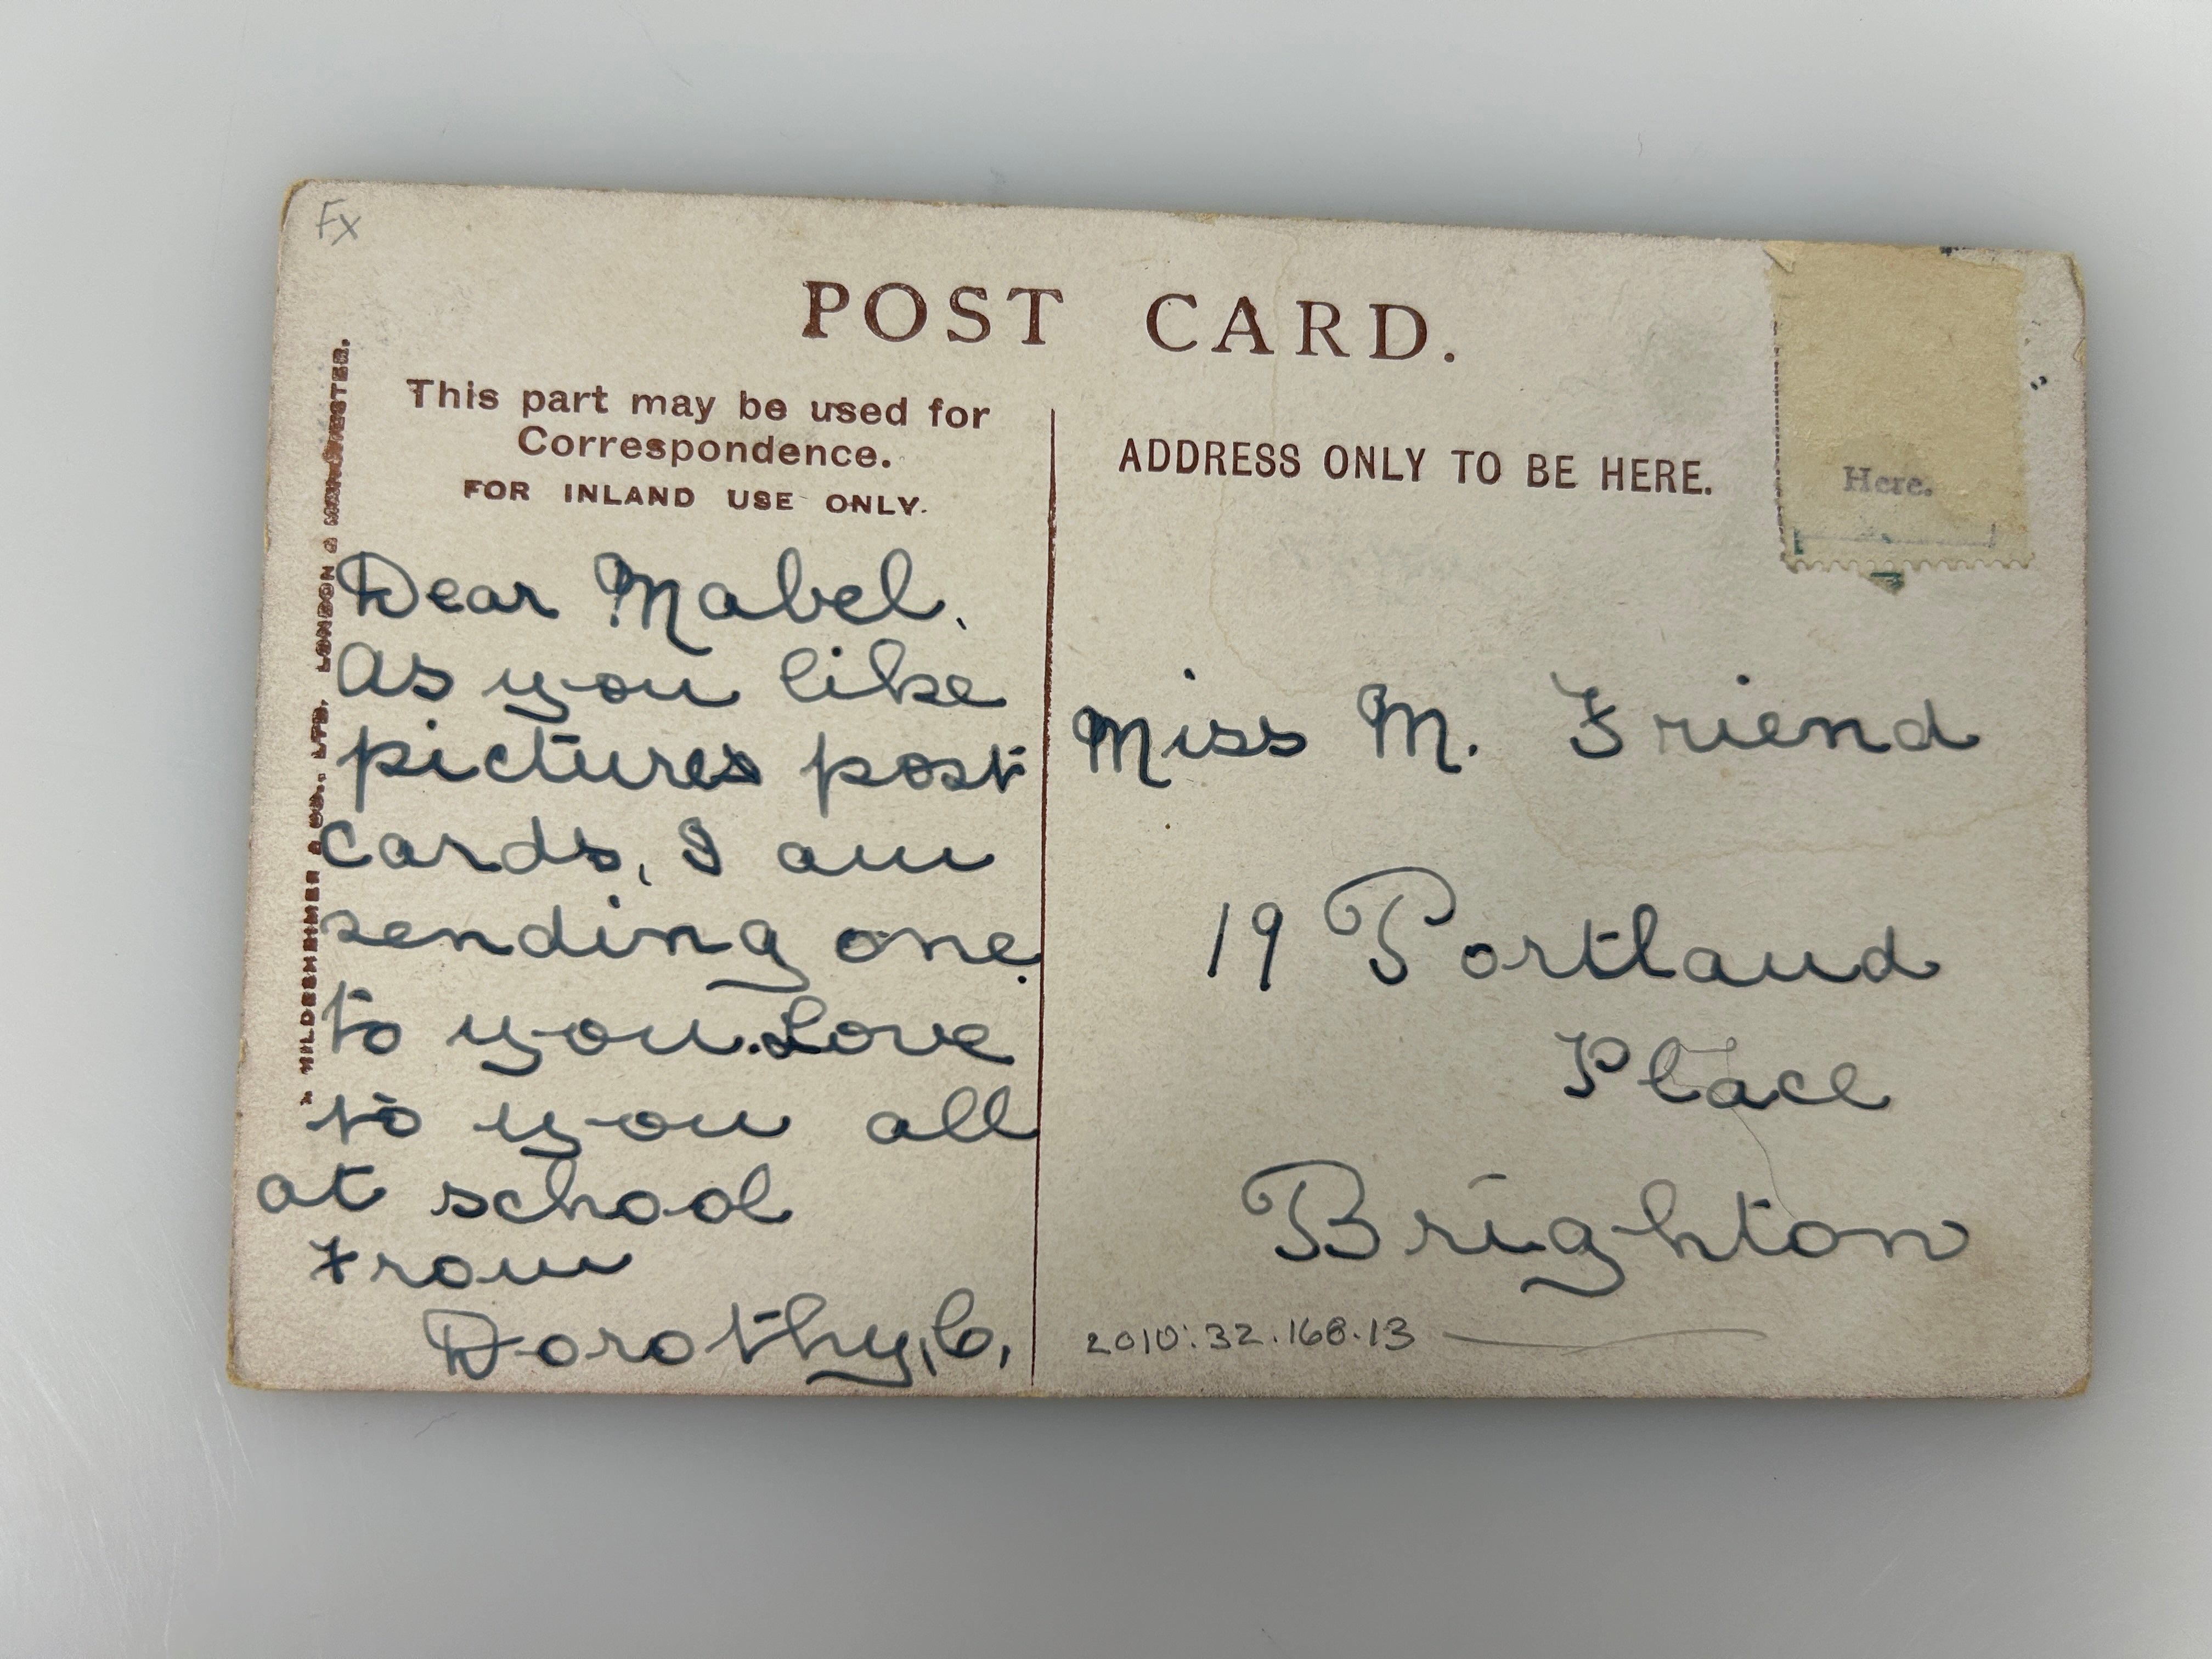 Fx
POST CARD.
This part may be used for
Correspondence.
FOR INLAND USE ONLY.
ADDRESS ONLY TO BE HERE.
Here.
HILDESHEIMER & CO., LTD. LONDON & MANCHESTER.
Dear Mabel.
As you like
pictures post
cards, I am
sending one.
to you. Love
to you all
at school
From
Dorothy, C.
Miss M. Friend
19 Portland
Place
Brighton
2010:32.168.13